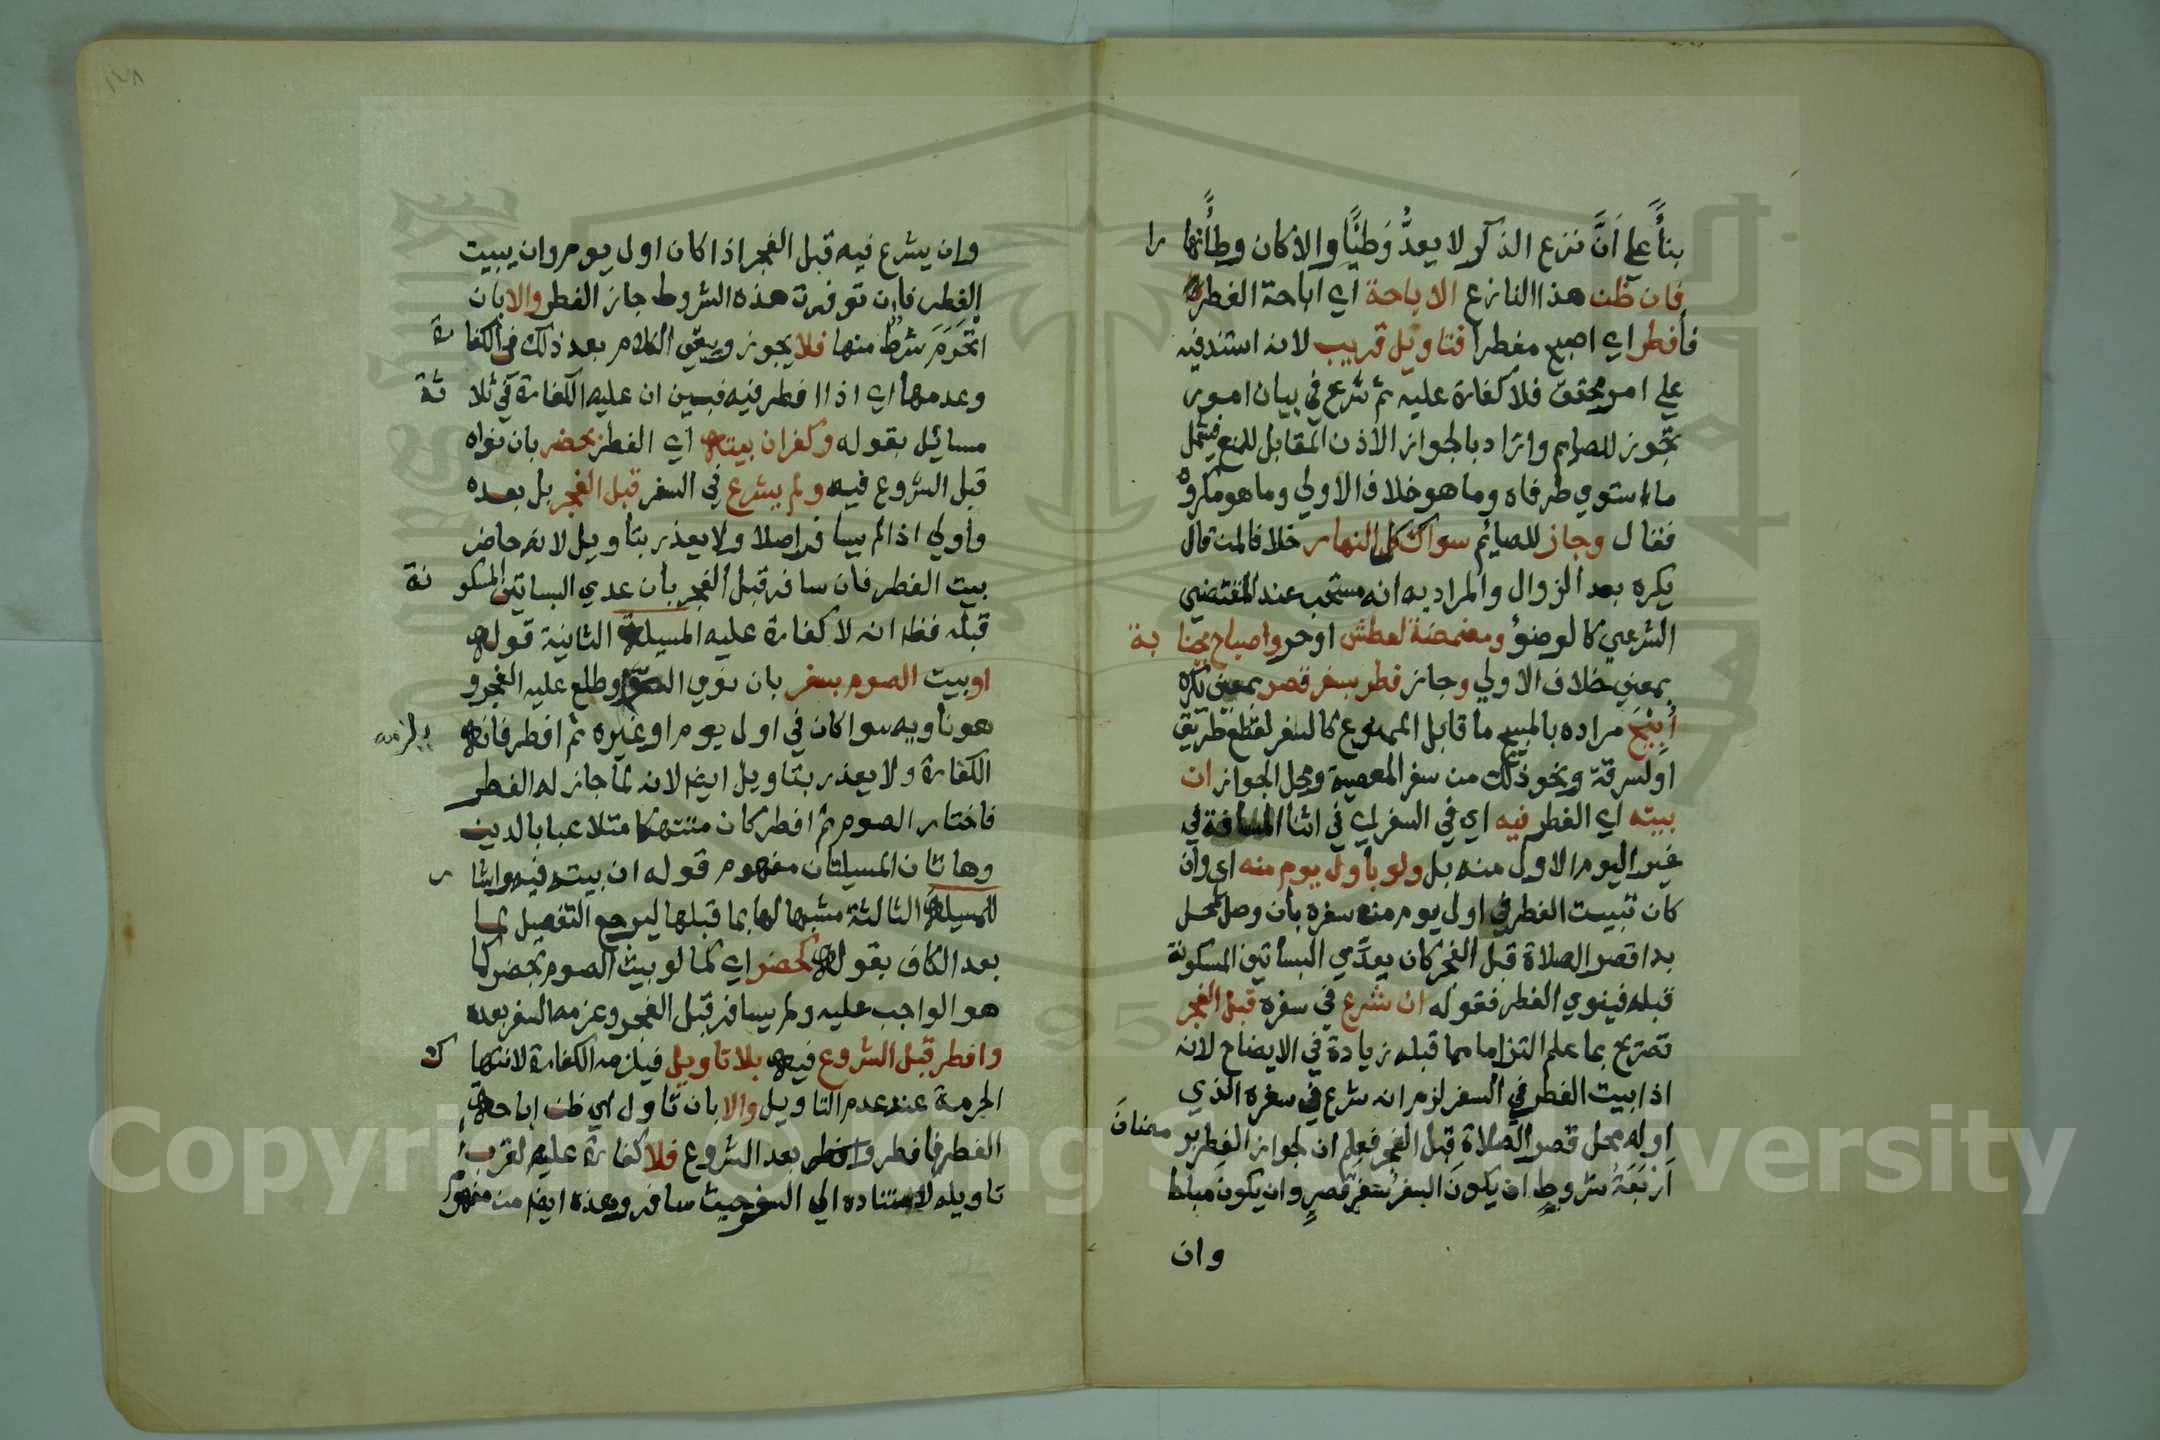 بناءً علي أنَّ نزع الذكر لا يعدُّ وَطئًا والا كان وطأً نها را
فان ظن هذا النازع الاباحة اي اباحة الفطر
فأفطر اي اصبح مفطرا فتاويل قريب لانه استند فيه
علي امر محقق فلا كفارة عليه ثم شرع في بيان امور
تجوز للصايم واراد بالجواز الاذن المقابل للمنع فيشمل
ما استوي طرفاه وما هو خلاف الاولي وما هو مكروه
فقال وجاز للصايم سواك كل النهار خلافا لمن قال
يكره بعد الزوال والمراد به انه مستحب عند المقتضي
الشرعي كالوضؤ ومضمضة لعطش او حر واصباح بجنا بة
بمعني خلاف الاولي وجاز فطر بسفر قصر بمعني يكره
أُبِيْحَ مراده بالمبيح ما قابل الممنوع كالسفر لقطع طريق
او لسرقة ونحو ذلك من سفر المعصية ومحل الجواز ان
بيته اي الفطر فيه اي في السفر اي في اثنا المسافة في
غير اليوم الاول منه بل ولو بأول يوم منه اي وان
كان تبييت الفطر في اول يوم من سفره بأن وصل لمحل
بدا قصر الصلاة قبل الفجر كان يعدَّي البساتين المسكونة
قبله فينوي الفطر فقوله ان شرع في سفره قبل الفجر
تصريح بما علم التزاما مما قبله زيادة في الايضاح لانه
اذا بيت الفطر في السفر لزم انه شرع في سفره الذي
اوله محل قصر الصلاة قبل الفجر فعلم ان لجواز الفطر بر مضان
أَرْبَعَةُ شروطٍ ان يكونَ السفرُ سَفَرَ قَصرٍ وان يكونَ مباحا
وان
وان يشرع فيه قبل الفجر اذا كان اول يوم وان يبيت
الفطر فإن توفرت هذه الشروط جاز الفطر والا بان
انْخَرَمَ شرطٌ منها فلا يجوز وبقي الكلام بعد ذلك في الكفا رة
وعدمها اي اذا افطر فيه فبين ان عليه الكفارة في ثلا ثة
مسائل بقوله وكفر ان بيته اي الفطر بحضر بان نواه
قبل الشروع فيه ولم يشرع في السفر قبل الفجر بل بعده
وأولي اذا لم يسافر اصلا ولا يعذر بتأويل لانه حاضر
بيت الفطر فان سافر قبل الفجر بأن عدي البساتين المسكو نة
قبله فظ انه لا كفارة عليه المسيلة الثانية قوله
او بيت الصوم بسفر بان نوي الصوم وطلع عليه الفجر و
هو ناويه سوا كان في اول يوم او غيره ثم افطر فانه يلزمه
الكفارة ولا يعذر بتاويل ايضا لانه لما جاز له الفطر
فاختار الصوم ثم افطر كان منتهكا متلاعبا بالدين
وهاتان المسيلتان مفهوم قوله ان بيته فيه واشا ر
للمسيلة الثالثة مشبها لها بما قبلها ليرجع التفصيل لما
بعد الكاف بقوله كحضر اي كما لو بيت الصوم بحضر كما
هو الواجب عليه ولم يسافر قبل الفجر وعزمه السفر بعده
وافطر قبل الشروع فيه بلا تاويل فيلزمه الكفارة لانتها ك
الحرمة عند عدم التاويل والا بان تاول اي ظن اباحة
الفطر فافطر وافطر بعد الشروع فلا كفارة عليه لقرب
تاويله لاستناده الي السفر حيث سافر وهذه ايضا من مفهوم